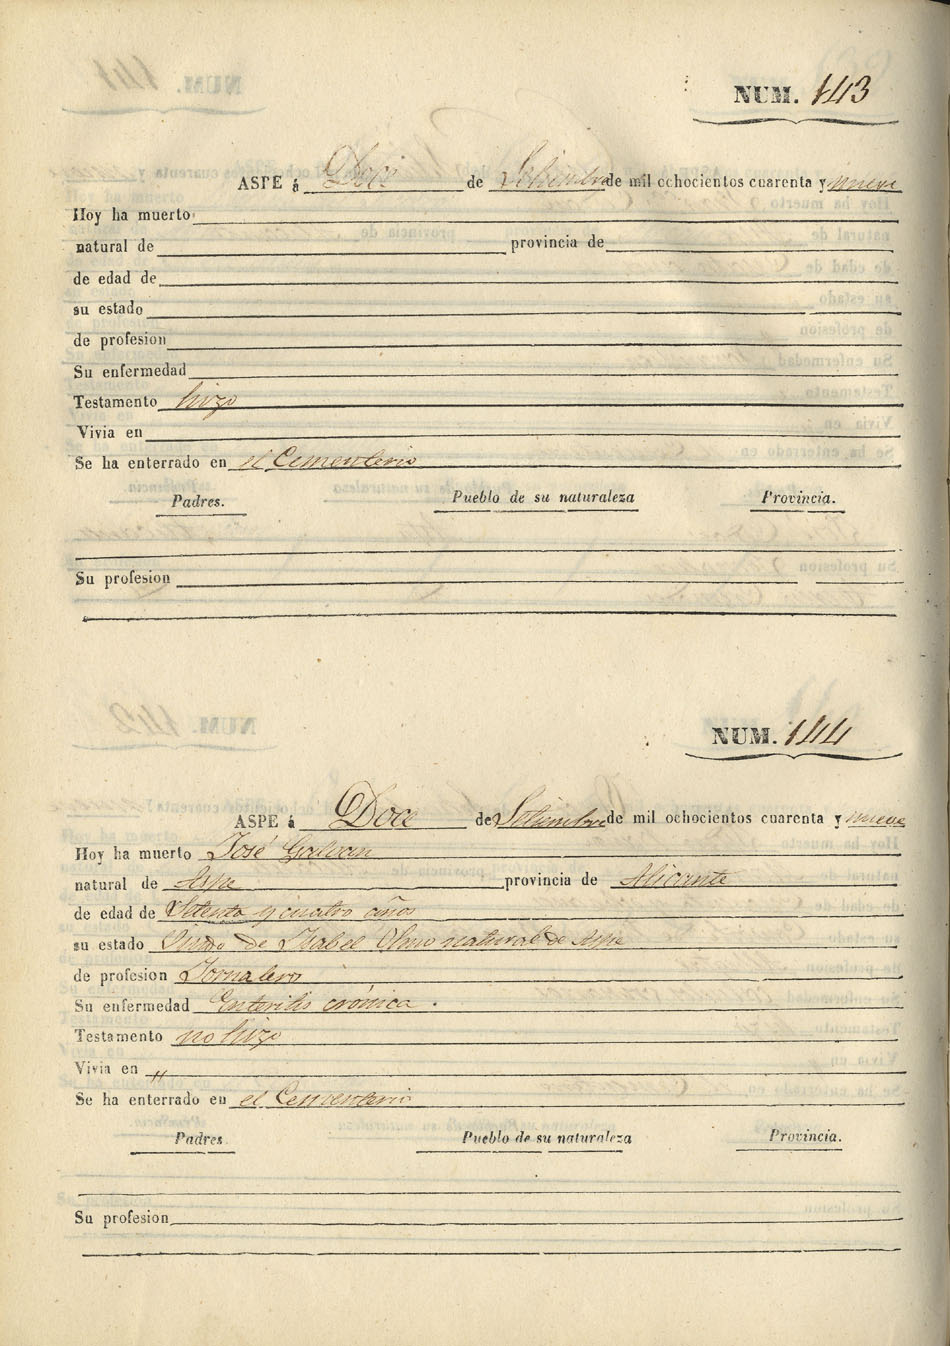 NUM. 143
ASPE á Doce de Setiembre de mil ochocientos cuarenta y nueve
Hoy ha muerto
natural de provincia de
de edad de
su estado
de profesion
Su enfermedad
Testamento hizo
Vivia en
Se ha enterrado en el Cementerio
Padres. Pueblo de su naturaleza Provincia.
Su profesion
NUM. 144
ASPE á Doce de Setiembre de mil ochocientos cuarenta y nueve
Hoy ha muerto José Galvan
natural de Aspe provincia de Alicante
de edad de Setenta y cuatro años
su estado Viudo de Isabel Olmo natural de Aspe
de profesion Jornalero
Su enfermedad Enteritis crónica.
Testamento no hizo
Vivia en "
Se ha enterrado en el Cementerio
Padres Pueblo de su naturaleza Provincia.
Su profesion